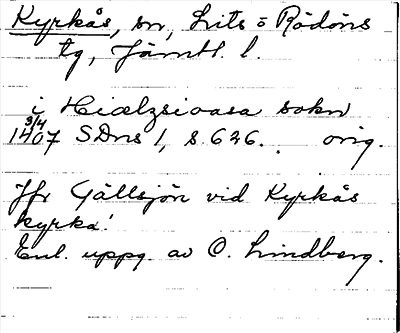 Kyrkås, sn, Lits o Rödöns
tg, Jämtl. l.
i Hiælzsioasa sokn
3/4
1407 SDns 1, s. 626. orig.
Jfr Gällsjön vid Kyrkås
kyrka!
Enl. uppg. av O. Lindberg.